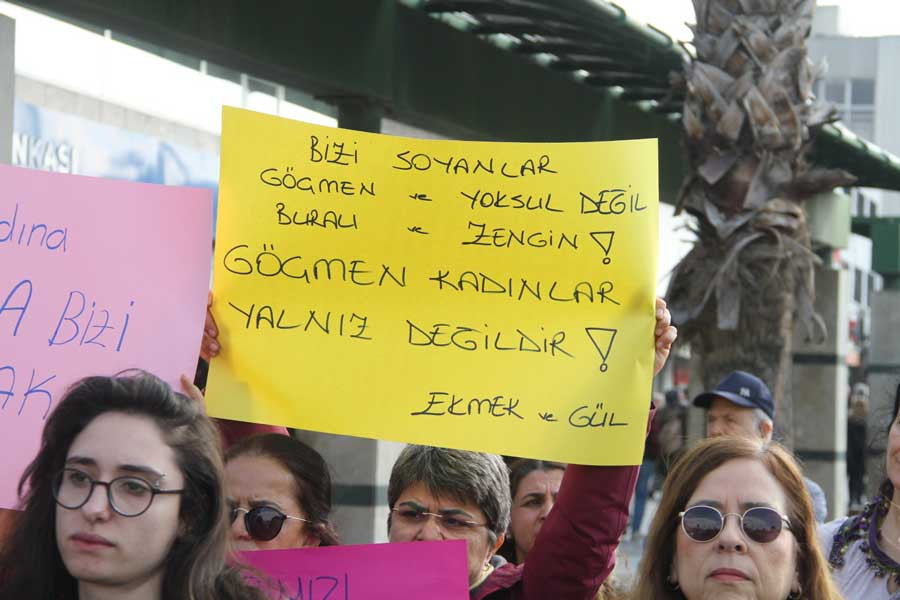 NKASI
BİZİ SOYANLAR
GÖÇMEN ve YOKSUL DEĞİL
BURALI ve ZENGİN!
GÖÇMEN KADINLAR
YALNIZ DEĞİLDİR!
EKMEK ve GÜL
dına
A BİZİ
AK
MIZI